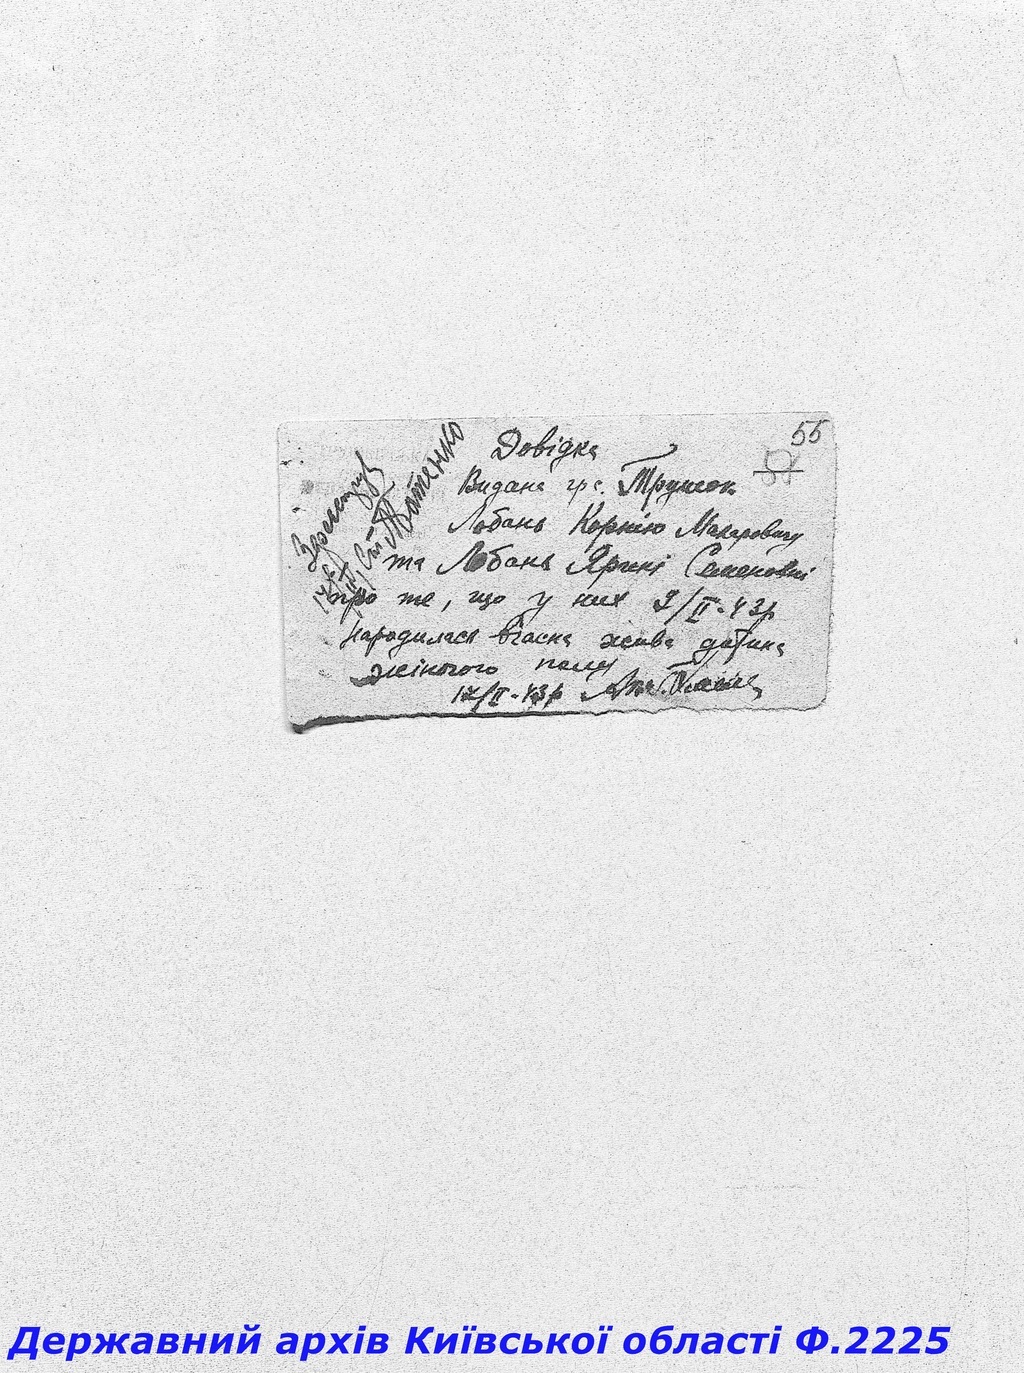 55
Довідка
Видана гр.
Лобань Корнію Макаровичу
та Лобань Ярині Семеновні
про те, що у них 9/II-43р
народилась вчасна жива дитина
жіночого полу
17/II-43р
Державний архів Київської області Ф.2225